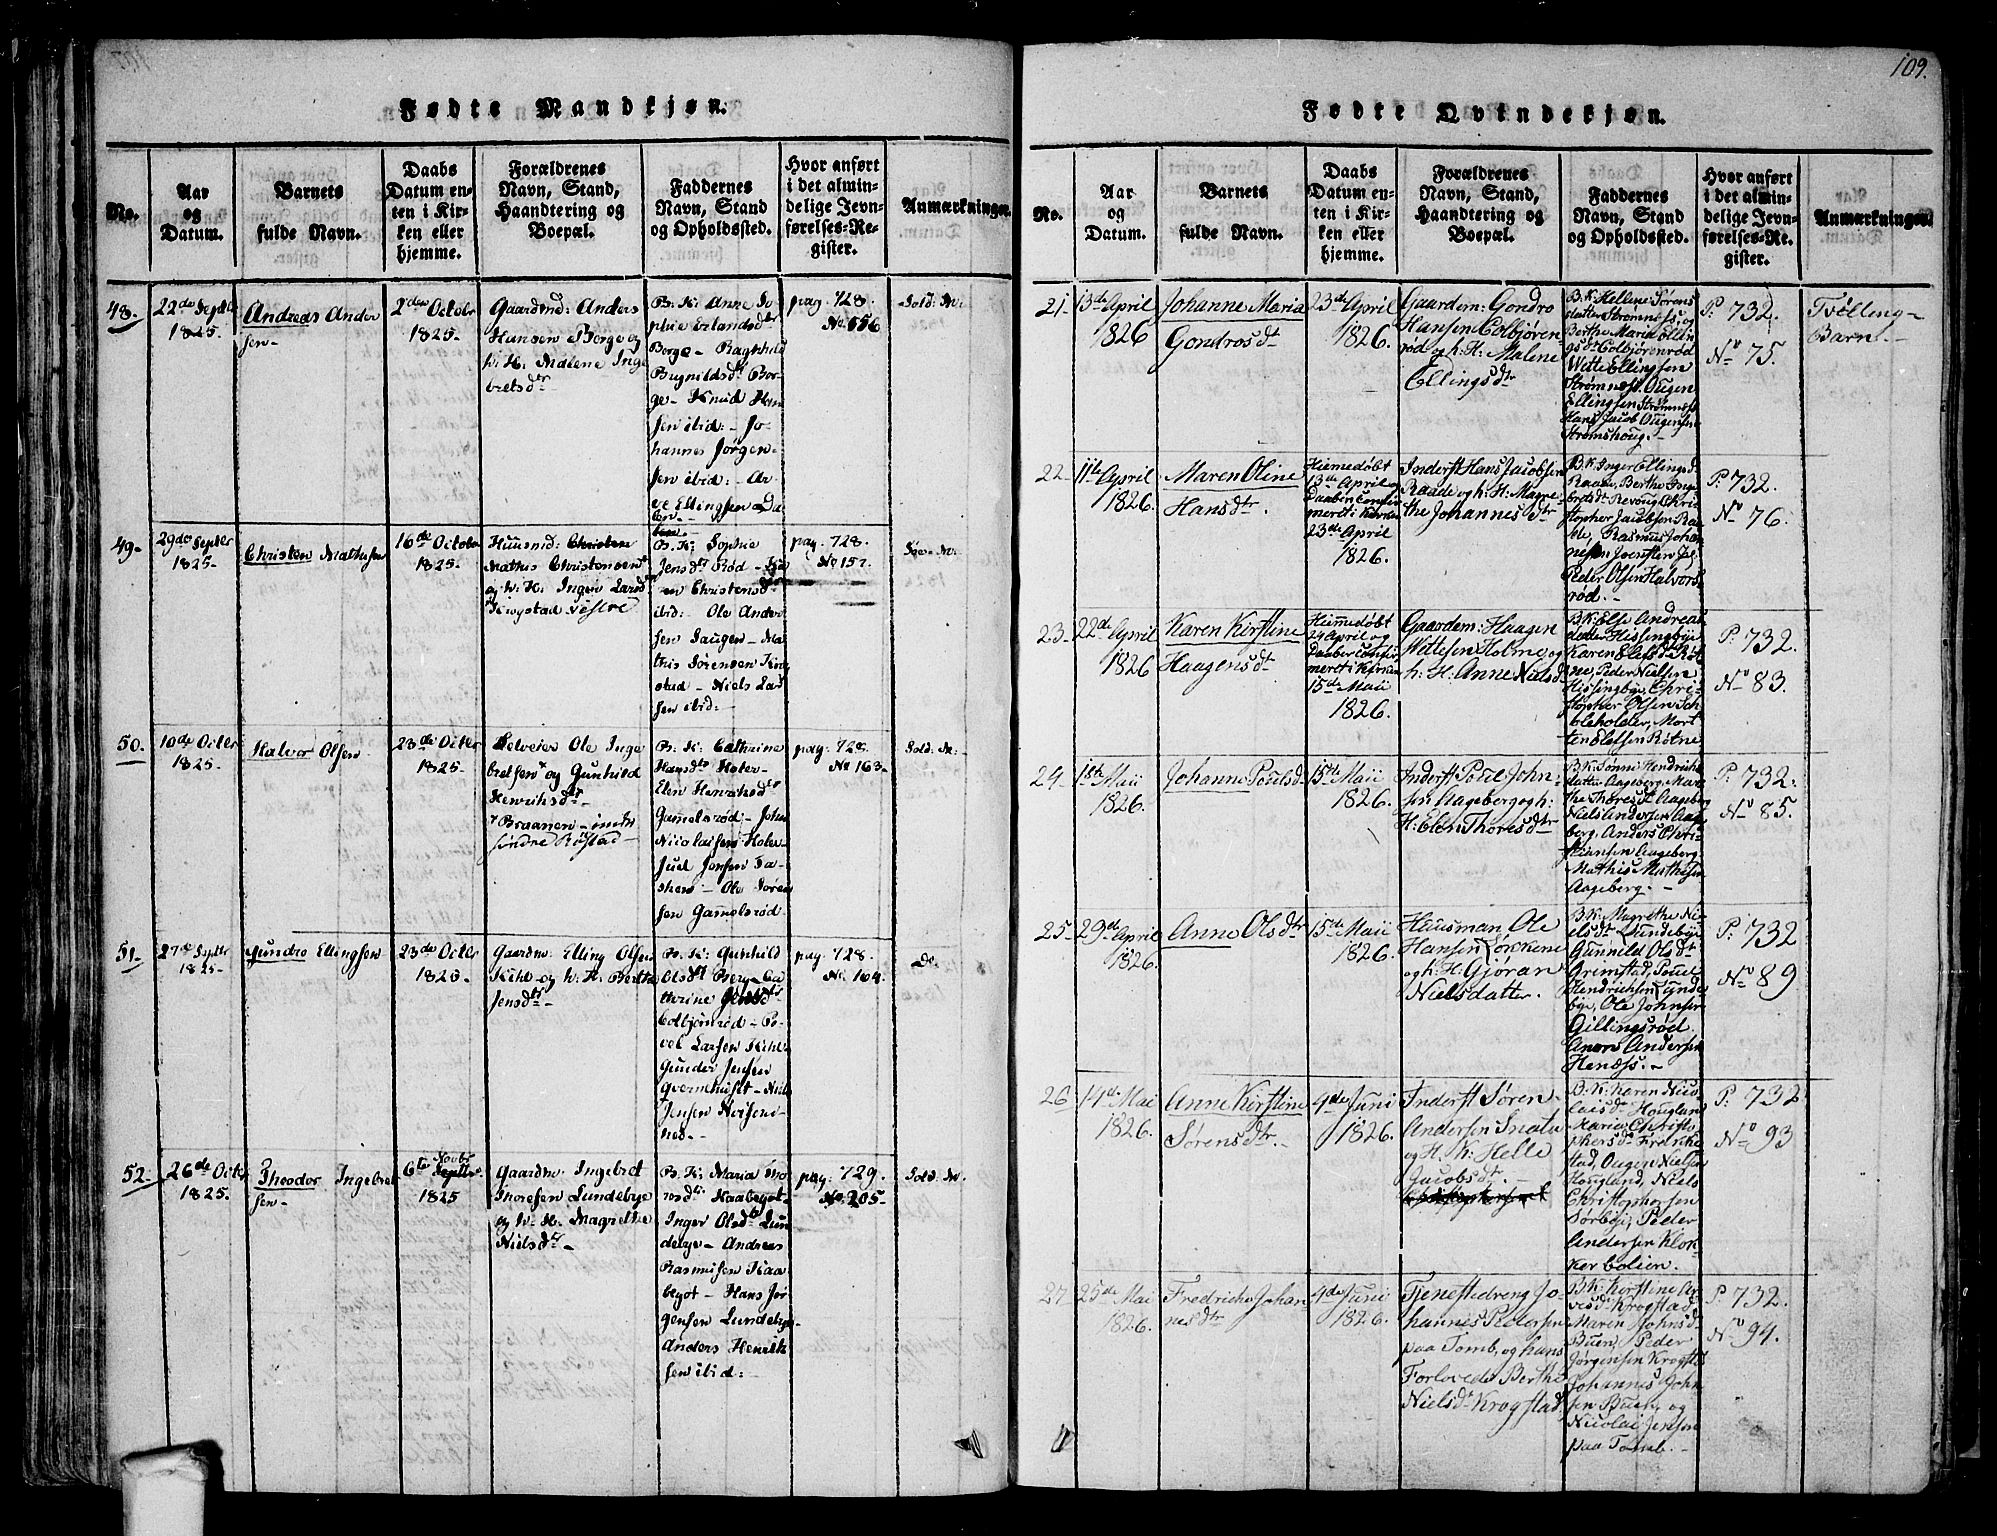 Fødte Mandkjøn.
No.
Aar
og
Datum.
Barnets
fulde Navn.
Daabs
Datum en-
ten i Kir-
ken eller
hjemme.
Forældrenes
Navn, Stand,
Haandtering og
Boepæl.
Faddernes
Navn, Stand
og Opholdssted.
Hvor anført
i det almin-
delige Jevn-
førelses-Re-
gister.
Anmærkninger.
48.
22de Septbr
1825.
Andreas Ander
sen
2den Octobr
1825.
Gaardmd: Anders
Hansen Borge og
h: H. Malene Inge
bretsdtr
B: K: Anne So-
phie Erlandsdtr
Borge - Ragnhild
Bor-
ge - Knud Han
sen ibid: - Jo-
hannes Jørgen-
sen ibid: - Ar-
ve Ellingsen
pag. 728.
No 156
Sold: N:
49.
29de Septbr
1825.
Christen Mathisen
16de Octobr
1825.
Huusmd:
Mathis Christensen
og h: H: Inger Larsdtr
Krogstad vestre
B: K: Sophie
Jensdtr Rød - Ka
ren Christensdtr
ibid: Ole Ander
sen Haugen - Ma
this Sørensen Krog
stad - Niels Lar
sen ibid:
pag: 728.
No 157.
50.
10de Octbr
1825.
Halvor Olsen
23de Octbr
1825.
Selveier Ole Inge
bretsen og Gunhild
Henrichsdtr
Braanen
B: K: Cathrine
Hansdtr Holer-
Elen Henrichsdtr
Gamelsrød - John
Nicolaisen Holer-
Juel Jensen
Ole Søren
sen Gamelsrød
pag: 728.
No 163.
Sold: N:
51.
27de Septbr
1825.
Gundro Ellingsen
23de Octbr
1825.
Gaardm: Elling Olsen
Kihl og h: H: Berthe
Jensdtr
B: K: Gunhild
Olsdtr Berg - Ca
thrine Jensdtr
Colbjørnrød - Po-
vel Larsen Kihl
Gunder Jensen
Niels
Jensen
pag: 728.
No 164.
Do:
52.
26de Octbr
1825.
Theodor Ingebret
sen
6te Novbr
1825
Gaardm: Ingebret
Thoresen Lundebye
og h: H: Magrethe
Nielsdtr
B: K: Maria Tho
resdtr Kaabegøt-
Inger Olsdtr Lun
debye - Andreas
Rasmusen Kaa
begøt - Hans Jør
gensen Lundebye
Anders Henrik
sen ibid:
pag: 729.
No 205.
Sold: N:
109.
Fødte Qvindekjøn.
No.
Aar
og
Datum.
Barnets
fulde Navn.
Daabs
Datum en-
ten i Kir-
ken eller
hjemme.
Forældrenes
Navn, Stand,
Haandtering og
Boepæl.
Faddernes
Navn, Stand
og Opholdssted.
Hvor anført
i det almin-
delige Jevn-
førelses-Re-
gister.
Anmærkninger.
21.
13de April
1826
Johanne Maria
Gondrosdt
23de April
1826.
Gaardem: Gondro
Hansen Colbjøren
rød og h: H: Malene
Ellingsdtr
B. K: Hellene Sørens
datter Strømnes og
Berthe Maria Ellin
gsdt Colbjørenrød
Witte Ellingsen
Strømnes, Ougen
Ellingsen Strømnes
Hans Jacob Ougensen
Strømshoug.
P: 732.
No 75.
Tvølling-
Barn.
22.
11te April
1826
Maren Oline
Hansdtr.
Hiemedøbt
13de April og
Daaben Confir
meret i Kirken
23de April
1826.
Inderst Hans Jacobsen
Raade og h: H: Magre
the Johannesdtr
B. K: Inger Ellingsdt
Raade, Berthe Inge
bretsdt Revoug, Chri
stopher Jacobsen Raa
de, Rasmus Johan
nesen
Peder Olsen Halvors
rød.
P: 732.
No 76.
23.
22de April
1826
Karen Kirstine
Haagensdt
Hiemmedøbt
24 April og
Daaben Confir
meret i Kirken
15de Maii
1826.
Gaardem: Haagen
Wittesen Holme og
h: H: Anne Nielsdt
B. K: Else Andreas
datter Hissingbye
Karen Elefsdt Røt
ne, Peder Nielsen
Hissingbye, Chri-
stopher Olsen
Mort
ten Elefsen Røtne
P: 732.
No 83.
24.
1ste Maii
1826.
Johanne Poulsdt
15de Maii
1826.
Inderst Poul John-
sen Aageberg og h:
H: Elen Thoresdtr
B: K: Sønne Hendrichs
datter Aageberg, Mar
the Thoresdt Aageberg
Niels Andersen Aage
berg, Anders Chri-
stiansen Aageberg
Mathis Mathisen
Aageberg.
P: 732.
No 85.
25.
29de April
1826.
Anne Olsdtr
15de Maii
1826.
Huusman Ole
Hansen Sørskene
og h: H: Gjøran
Nielsdatter.
B. K: Magrethe Ni-
elsdt Lundebye
Gunnild Olsdt
Grimstad, Poul
Hendrichsen Lynde
bye, Ole Johnsen
Gillingsrød
Anors Andersen
Henæss.
P: 732
No 89
26
14de Mai
1826.
Anne Kirstine
Sørensdtr.
4de Juni
1826.
Inderst Søren
Andersen Snatu
og H. K. Helle
Jacobsdtr.
B. K: Karen Nico
laisdt Hougland
Maria Christo
phersdt Fredrich
stad, Ougen Nielsen
Hougland, Niels
Christophersen
Sørbye, Peder
Andersen Klok-
ker bolien.
P: 732
No 93
27.
25de Mai
1826.
Fredricha Johan
nesdtr
4de Junii
1826.
Tjenestedreng Jo-
hannes Pedersen
paa Tomb, og hans
Forlovede Berthe
Nielsdt Krogstad,
B. K. Kirstine Ar
vesdt Krogstad
Maren Johnsdt
Buen, Peder
Jørgensen Krogstad
Johannes John
sen Buen, og
Nicolai Jensen
paa Tomb.
P: 732.
No 94.